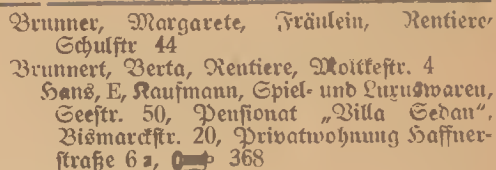 Brunner, Margarete, Fräulein, Rentiere
Schulstr 44
Brunnert, Berta, Rentiere, Moltkestr. 4
Hans, E, Kaufmann, Spiel- und Luxuswaren,
Seestr. 50, Pensionat „Villa Sedan",
Bismarckstr. 20, Privatwohnung Haffner-
straße 6 a, 368